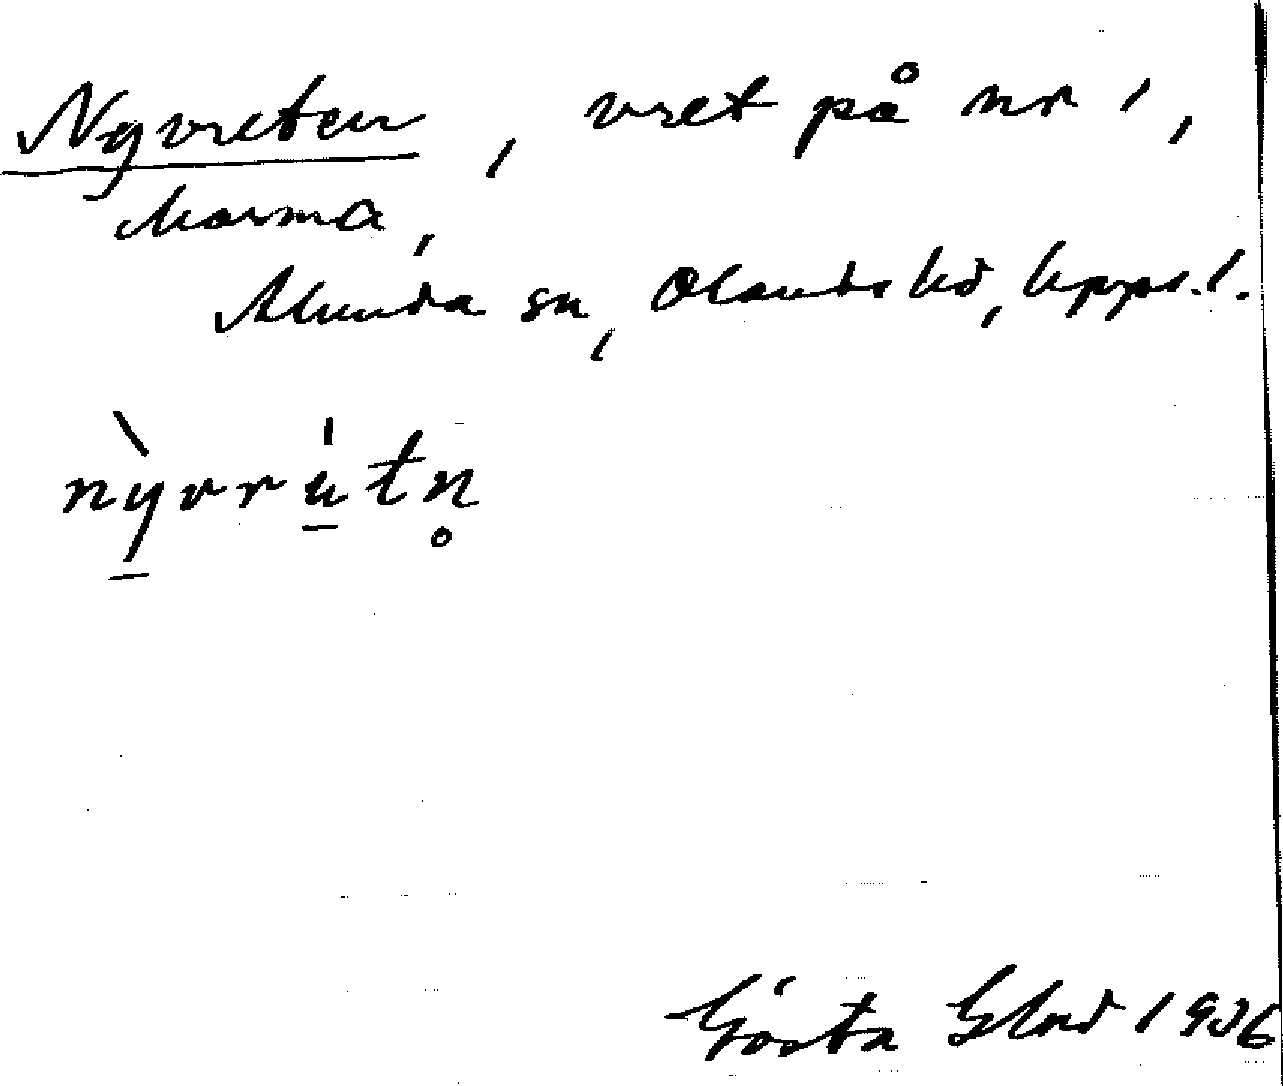 Nyvreten, vret på nr 1,
Marma,
Alunda sn, Olands hd, Upps. l.
nỳvrútn̥
Gösta Blad 1936